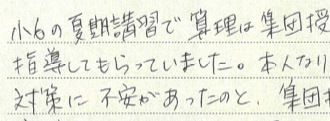 小6の夏期講習で算理は集団授
指導してもらっていました。本人なり
対策に不安があったのと、集団